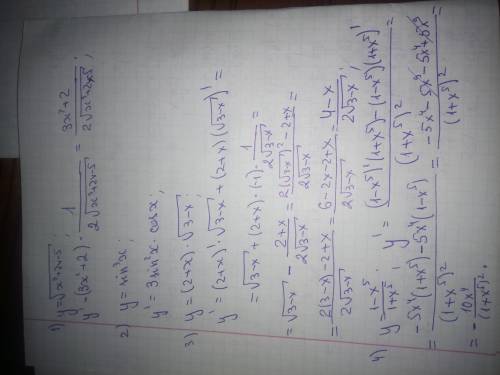 1) y=√(x³+2x-5);
y'=(3x²+2)·1/(2√(x³+2x-5)) = (3x²+2)/(2√(x³+2x-5));
2) y=sin³x;
y'=3sin²x·cosx;
3) y=(2+x)·√(3-x);
y'=(2+x)'·√(3-x)+(2+x)(√(3-x))'=
=√(3-x)+(2+x)·(-1)·1/(2√(3-x))=
=√(3-x) - (2+x)/(2√(3-x)) = (2(√(3-x))²-2+x)/(2√(3-x)) =
= (2(3-x)-2+x)/(2√(3-x)) = (6-2x-2+x)/(2√(3-x)) = (4-x)/(2√(3-x));
4) y=(1-x⁵)/(1+x⁵); y'=((1-x⁵)'(1+x⁵)-(1-x⁵)(1+x⁵)')/(1+x⁵)² =
= (-5x⁴(1+x⁵)-5x⁴(1-x⁵))/(1+x⁵)² = (-5x⁴-5x⁹-5x⁴+5x⁹)/(1+x⁵)² =
= -10x⁴/(1+x⁵)²;